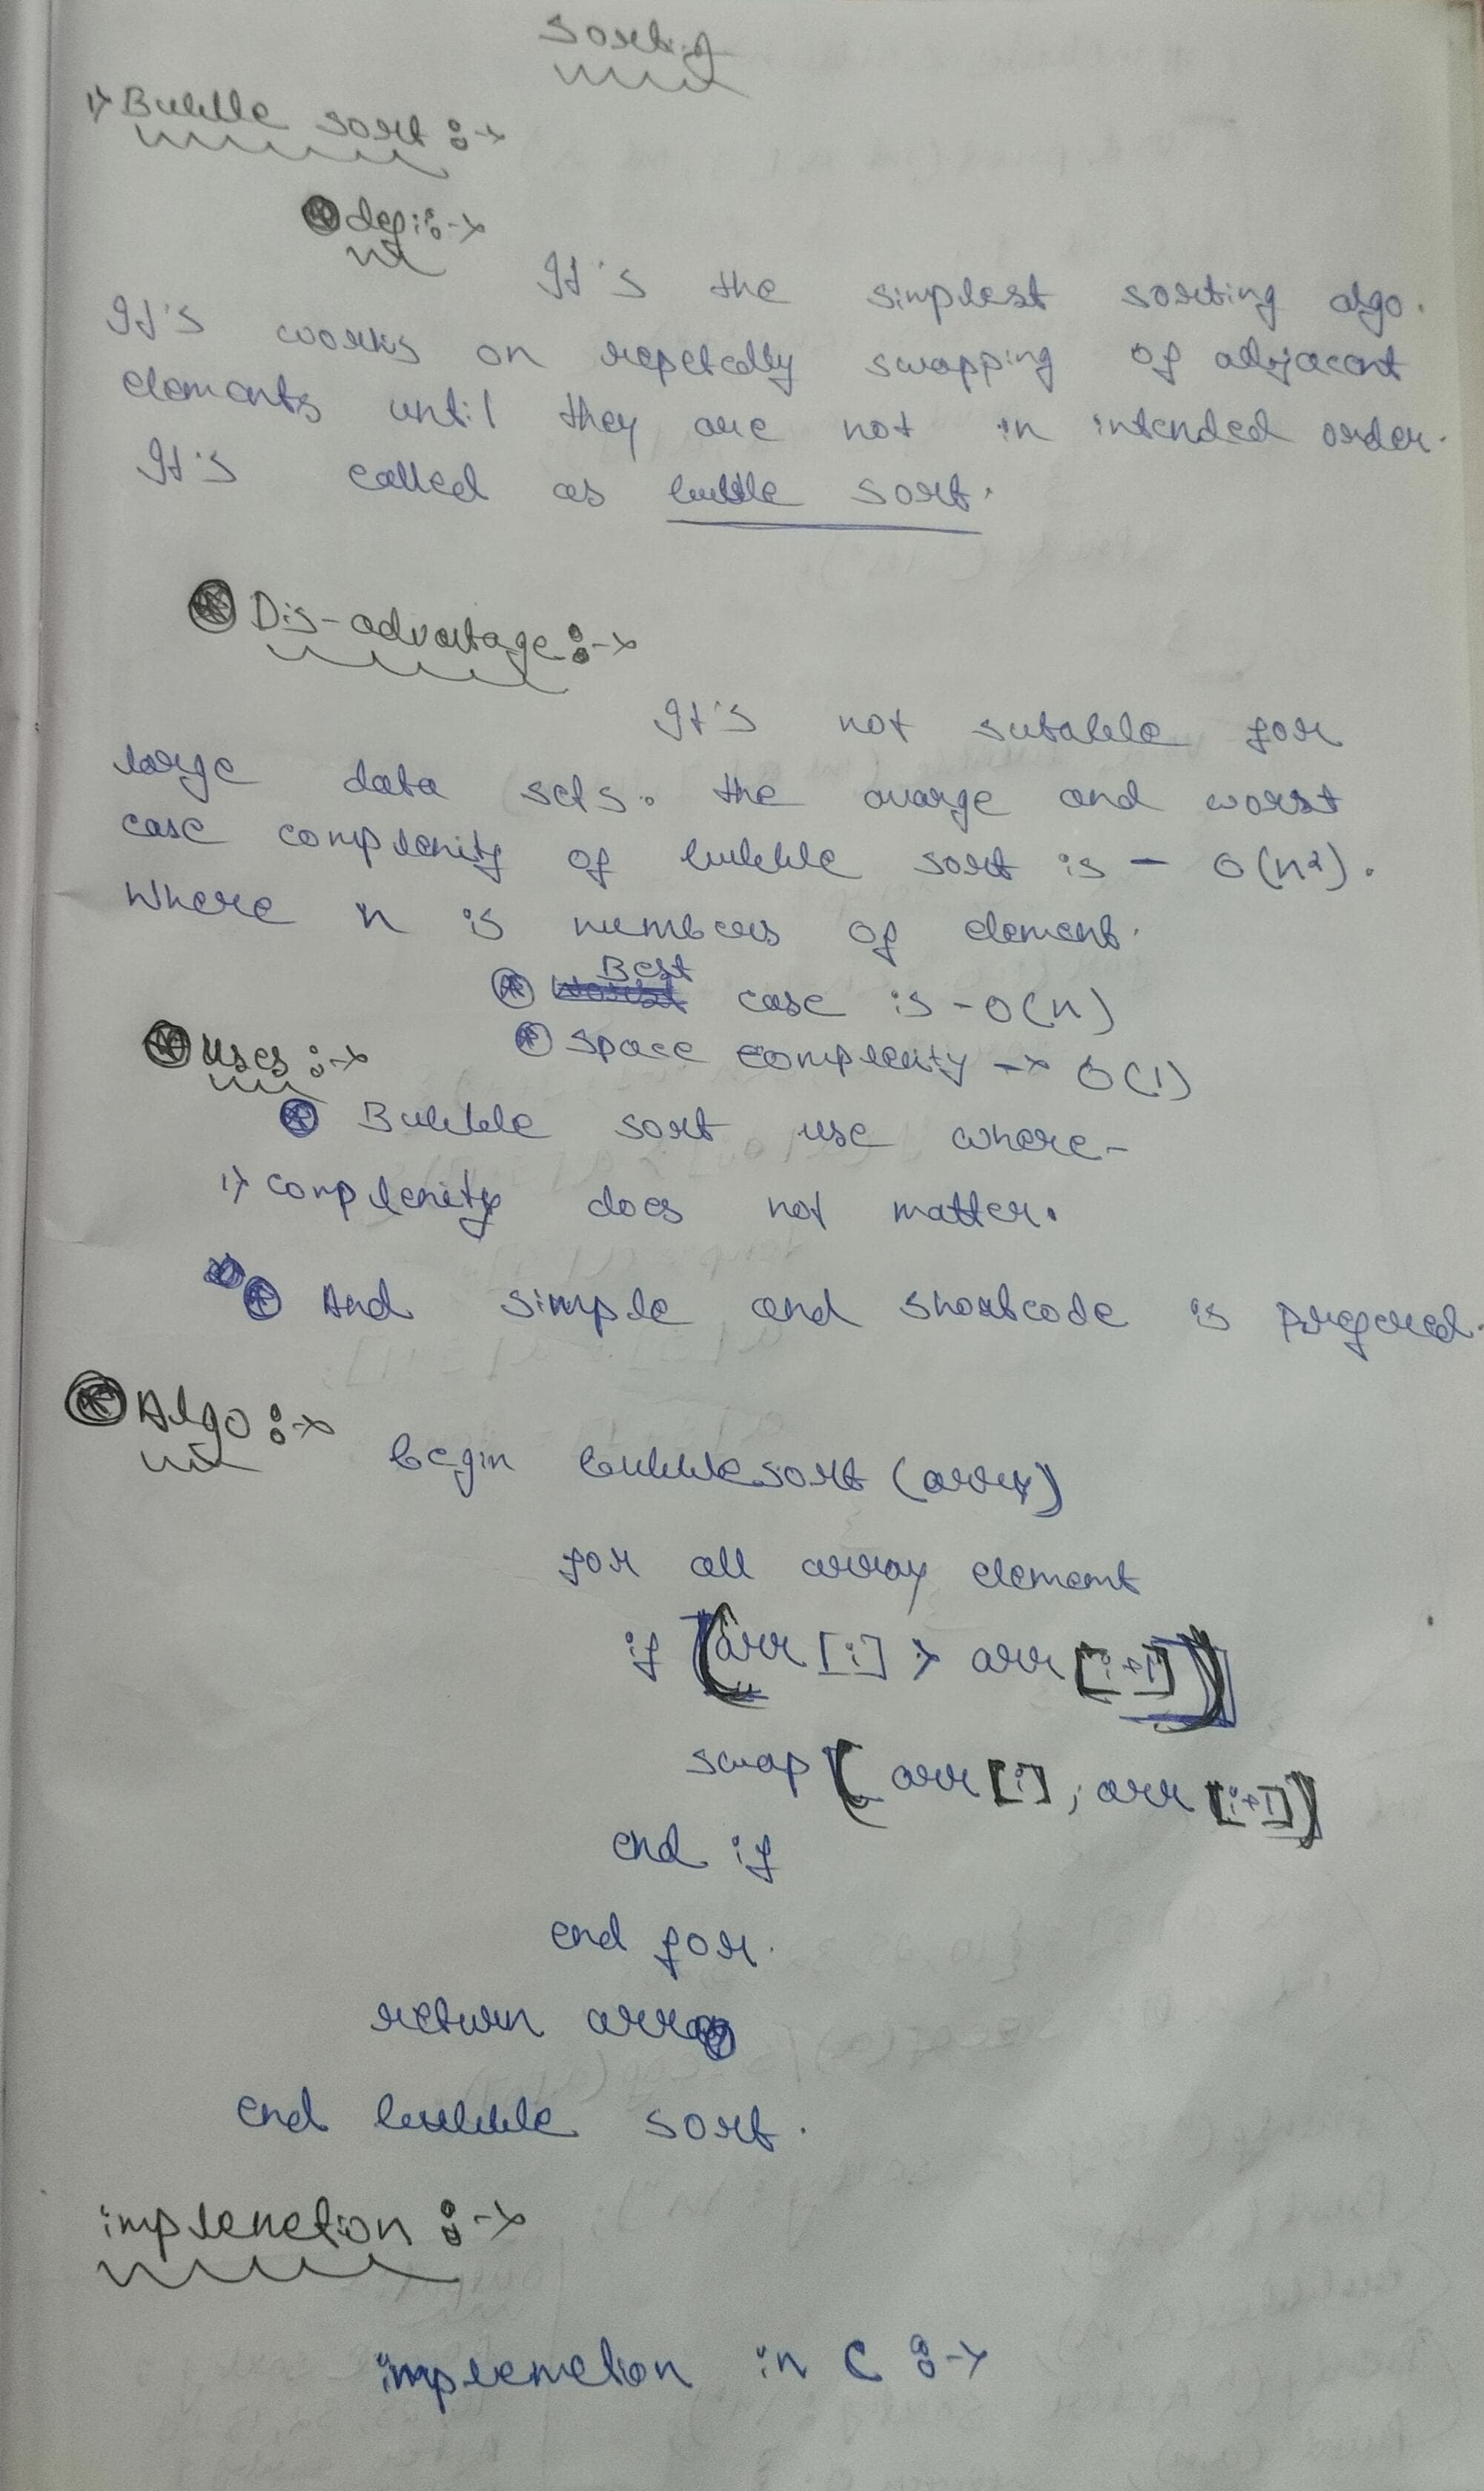 Sorting
1> Bubble sort :->
def :->
It's the simplest sorting algo.
It's works on repetedly swapping of adjacent
elements until they are not in intended order.
It's called as bubble sort.
Dis-advantage :->
It's not sutable for
large data sets. the avarge and worst
case complexity of bubble sort is - O(n²).
Where n is numbers of element.
Best case is - O(n)
Uses :->
space complexity -> O(1)
Bubble sort use where-
1> complexity does not matter.
And simple and shortcode is prefered.
Algo :->
begin bubblesort (array)
for all array element
if (arr[i] > arr[i+1])
swap (arr[i], arr[i+1])
end if
end for.
return array
end bubble sort.
implemetion :->
implemetion in C :->